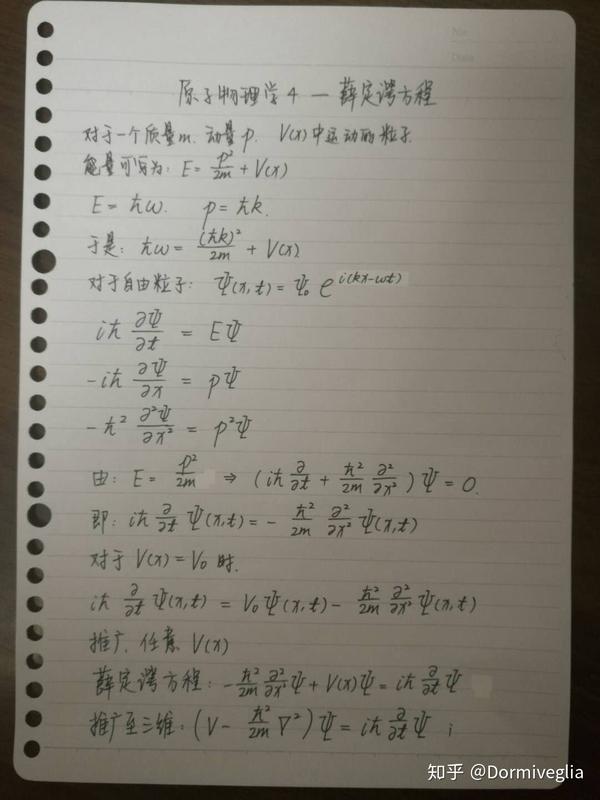 No.
Date
原子物理学4 — 薛定谔方程
对于一个质量m、动量p、V(x)中运动的粒子.
能量可写为: E = p²/2m + V(x)
E = ħω. p = ħk.
于是: ħω = (ħk)²/2m + V(x)
对于自由粒子: Ψ(x,t) = Ψ₀ e^{i(kx-ωt)}
iħ ∂Ψ/∂t = EΨ
-iħ ∂Ψ/∂x = pΨ
-ħ² ∂²Ψ/∂x² = p²Ψ
由: E = p²/2m ⇒ (iħ ∂/∂t + ħ²/2m ∂²/∂x²)Ψ = 0.
即: iħ ∂/∂t Ψ(x,t) = - ħ²/2m ∂²/∂x² Ψ(x,t)
对于 V(x) = V₀ 时.
iħ ∂/∂t Ψ(x,t) = V₀Ψ(x,t) - ħ²/2m ∂²/∂x² Ψ(x,t)
推广, 任意 V(x)
薛定谔方程: -ħ²/2m ∂²/∂x² Ψ + V(x)Ψ = iħ ∂/∂t Ψ
推广至三维: (V - ħ²/2m ∇²)Ψ = iħ ∂/∂t Ψ ;
知乎 @Dormiveglia